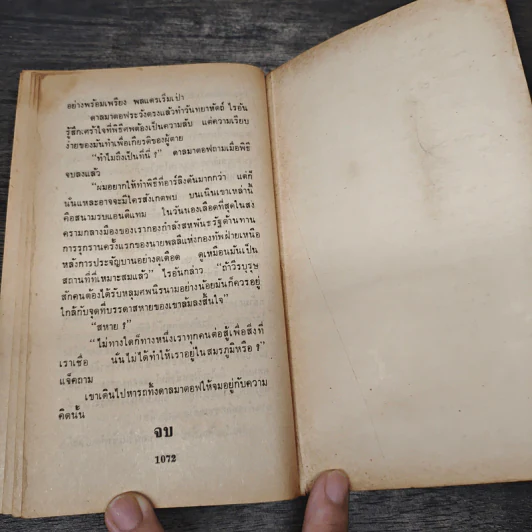 อย่างพร้อมเพรียง พลแตรเริ่มเป่า
ดาลมาตอฟระวังตรงแล้วทำวันทยาหัตถ์ ไรอัน
รู้สึกเศร้าใจที่พิธีศพต้องเป็นความลับ แต่ความเรียบ
ง่ายของมันทำเพื่อเกียรติของผู้ตาย
“ทำไมถึงเป็นที่นี่ ?” ดาลมาตอฟถามเมื่อพิธี
จบลงแล้ว
“ผมอยากให้ทำพิธีที่อาร์ลิงตันมากกว่า แต่ก็
นั่นแหละอาจจะมีใครสังเกตพบ บนเนินเขาเหล่านี้
คือสนามรบแอนตีแทม ในวันนองเลือดที่สุดในสง
ครามกลางเมืองของเรากองกำลังสหพันธรัฐต้านทาน
การรุกรานครั้งแรกของนายพลลีแห่งกองทัพฝ่ายเหนือ
หลังการประจัญบานอย่างดุเดือด ดูเหมือนมันเป็น
สถานที่ที่เหมาะสมแล้ว” ไรอันกล่าว “ถ้าวีรบุรุษ
สักคนต้องได้รับหลุมศพนิรนามอย่างน้อยมันก็ควรอยู่
ใกล้กับจุดที่บรรดาสหายของเขาล้มลงสิ้นใจ”
“สหาย ?”
“ไม่ทางใดก็ทางหนึ่งเราทุกคนต่อสู้เพื่อสิ่งที่
เราเชื่อ นั่นไม่ได้ทำให้เราอยู่ในสมรภูมิหรือ ?”
แจ็คถาม
เขาเดินไปหารถทิ้งดาลมาตอฟให้จมอยู่กับความ
คิดนั้น
จบ
1072